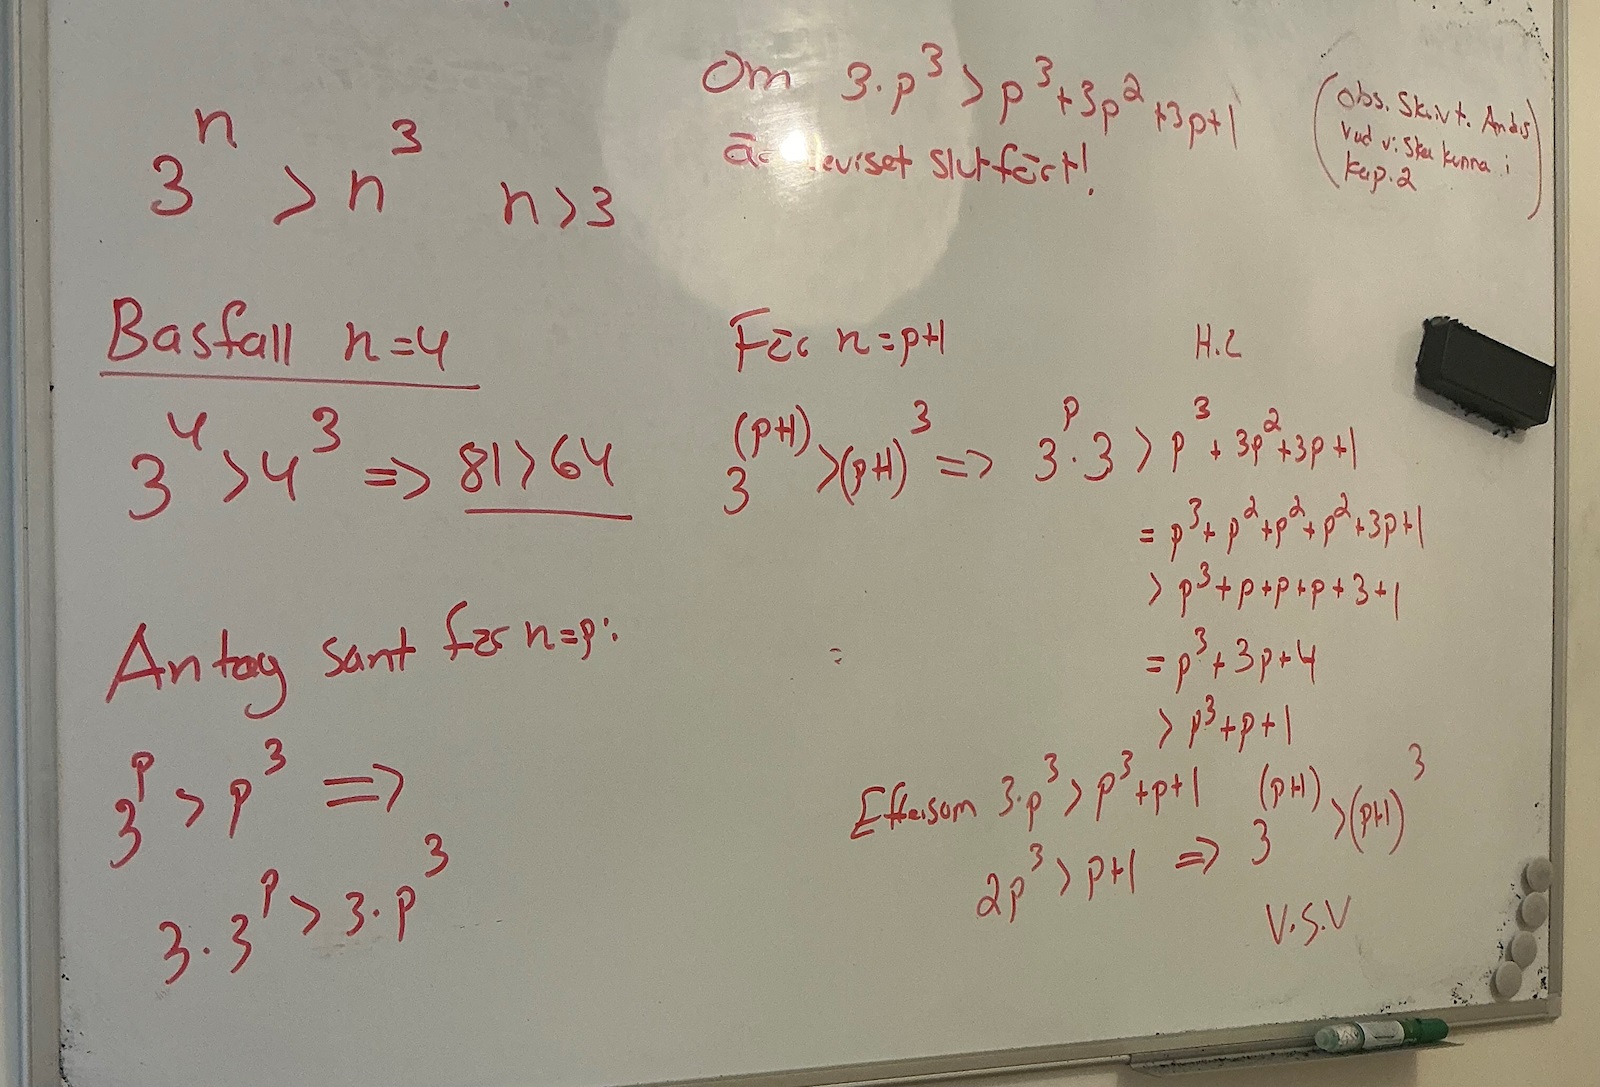 3^n > n^3 n>3
Basfall n=4
3^4 > 4^3 => 81>64
Antag sant för n=p:
3^p > p^3 =>
3·3^p > 3·p^3
Om 3·p^3 > p^3+3p^2+3p+1
är beviset slutfört!
(obs.
vad vi ska kunna i
kap.2)
För n=p+1 H.L
3^(p+1) > (p+1)^3 => 3^p·3 > p^3+3p^2+3p+1
= p^3+p^2+p^2+p^2+3p+1
> p^3+p+p+p+3+1
= p^3+3p+4
> p^3+p+1
Eftersom 3·p^3 > p^3+p+1
2p^3 > p+1 => 3^(p+1) > (p+1)^3
V.S.V